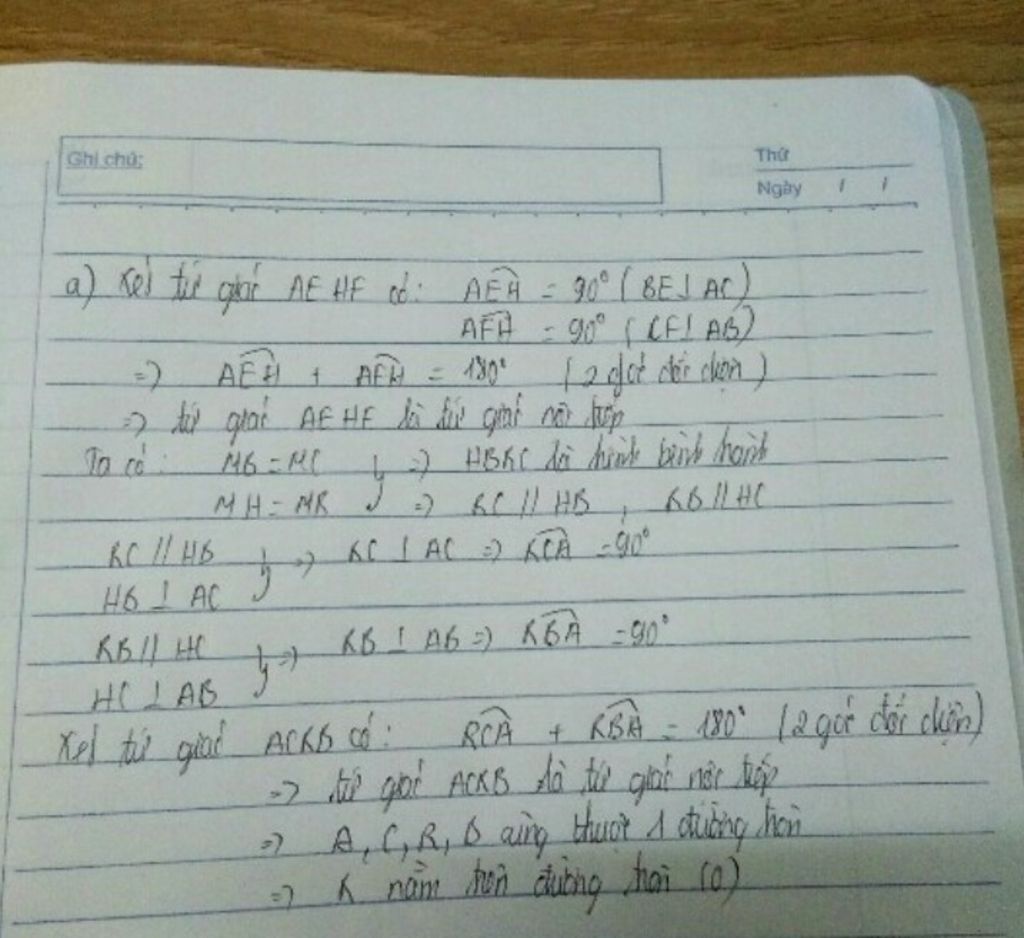 Ghi chú:
Thứ
Ngày / /
a) Xét tứ giác AEHF có: AEH = 90° (BE⊥AC)
AFH = 90° (CF⊥AB)
=> AEH + AFH = 180° (2 góc đối diện)
=> tứ giác AEHF là tứ giác nội tiếp
Ta có: MB = MC } => HBKC là hình bình hành
MH = MK => KC // HB , KB // HC
KC // HB } => KC ⊥ AC => KCA = 90°
HB ⊥ AC
KB // HC } => KB ⊥ AB => KBA = 90°
HC ⊥ AB
Xét tứ giác ACKB có: KCA + KBA = 180° (2 góc đối diện)
=> tứ giác ACKB là tứ giác nội tiếp
=> A, C, K, B cùng thuộc 1 đường tròn
=> K nằm trên đường tròn (O)